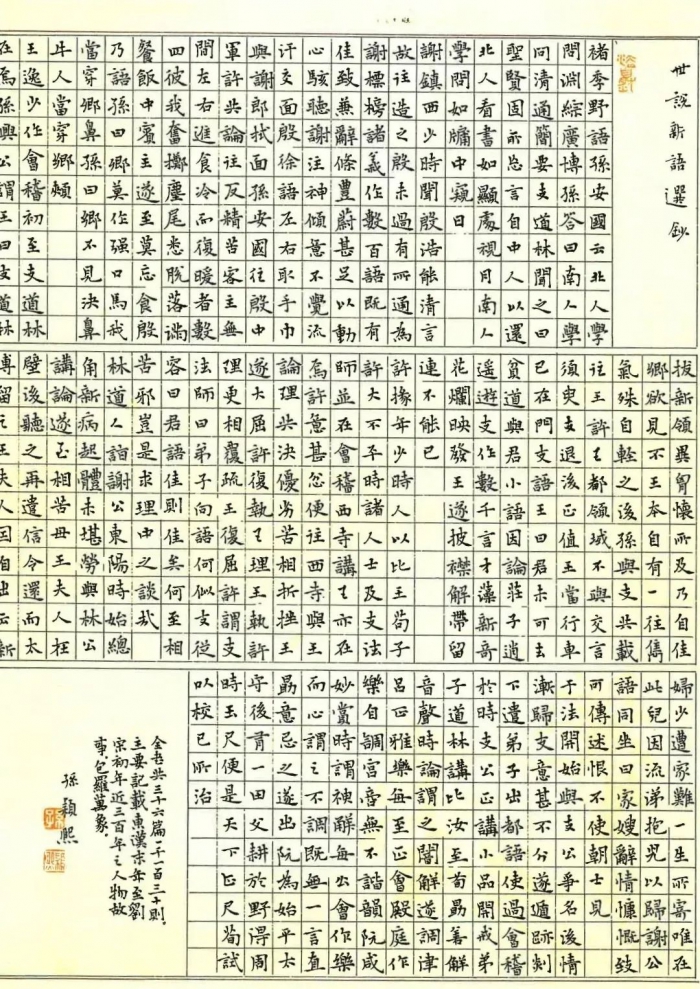 世說新語選鈔
褚季野語孫安國云北人學
問淵綜廣博孫答曰南人學
問清通簡要支道林聞之曰
聖賢固所忘言自中人以還
北人看書如顯處視月南人
學問如牖中窺日
謝鎮西少時聞殷浩能清言
故往造之殷未過有所通為
謝標榜諸義作數百語既有
佳致兼辭條豐蔚甚足以動
心駭聽謝注神傾意不覺流
汗交面殷徐語左右取手巾
與謝郎拭面孫安國往殷中
軍許共論往反精苦客主無
間左右進食冷而復暖者數
四彼我奮擲麈尾悉脫落滿
餐飯中賓主遂至莫忘食殷
乃語孫曰卿莫作强口馬我
當穿卿鼻孫曰卿不見決鼻
牛人當穿卿頰
王逸少作會稽初至支道林
在焉孫興公謂王曰支道林
拔新領異胷懷所及乃自佳
卿欲見不王本自有一往雋
氣殊自輕之後孫與支共載
往王許王都領域不與交言
須臾支退後正值王當行車
已在門支語王曰君未可去
貧道與君小語因論莊子逍
遙遊支作數千言才藻新奇
花爛映發王遂披襟解帶留
連不能已
許掾年少時人以比王荀子
許大不平時諸人士及支法
師並在會稽西寺講王亦在
焉許意甚忿便往西寺與王
論理共決優劣苦相折挫王
遂大屈許復執王理王執許
理更相覆疏王復屈許謂支
法師曰弟子向語何似支從
容曰君語佳則佳矣何至相
苦邪豈是求理中之談哉
林道人詣謝公東陽時始總
角新病起體未堪勞與林公
講論遂至相苦母王夫人在
壁後聽之再遣信令還而太
傅留之王夫人因自出云新
婦少遭家難一生所寄唯在
此兒因流涕抱兒以歸謝公
語同坐曰家嫂辭情慷慨致
可傳述恨不使朝士見
于法開始與支公爭名後情
漸歸支意不分遂遁跡剡
下遣弟子出都語使過會稽
於時支公正講小品開戒弟
子道林講比汝至荀勗善解
音聲時論謂之闇解遂調律
呂正雅樂每至正會殿庭作
樂自調宮商無不諧韻阮咸
妙賞時謂神解每公會作樂
而心謂之不調既無一言直
勗意忌之遂出阮為始平太
守後有一田父耕於野得周
時玉尺便是天下正尺荀試
以校已所治
全書共三十六篇一千一百三十則,
主要記載東漢末年至劉
宋初年近三百年之人物故
事包羅萬象。
孫穎熙